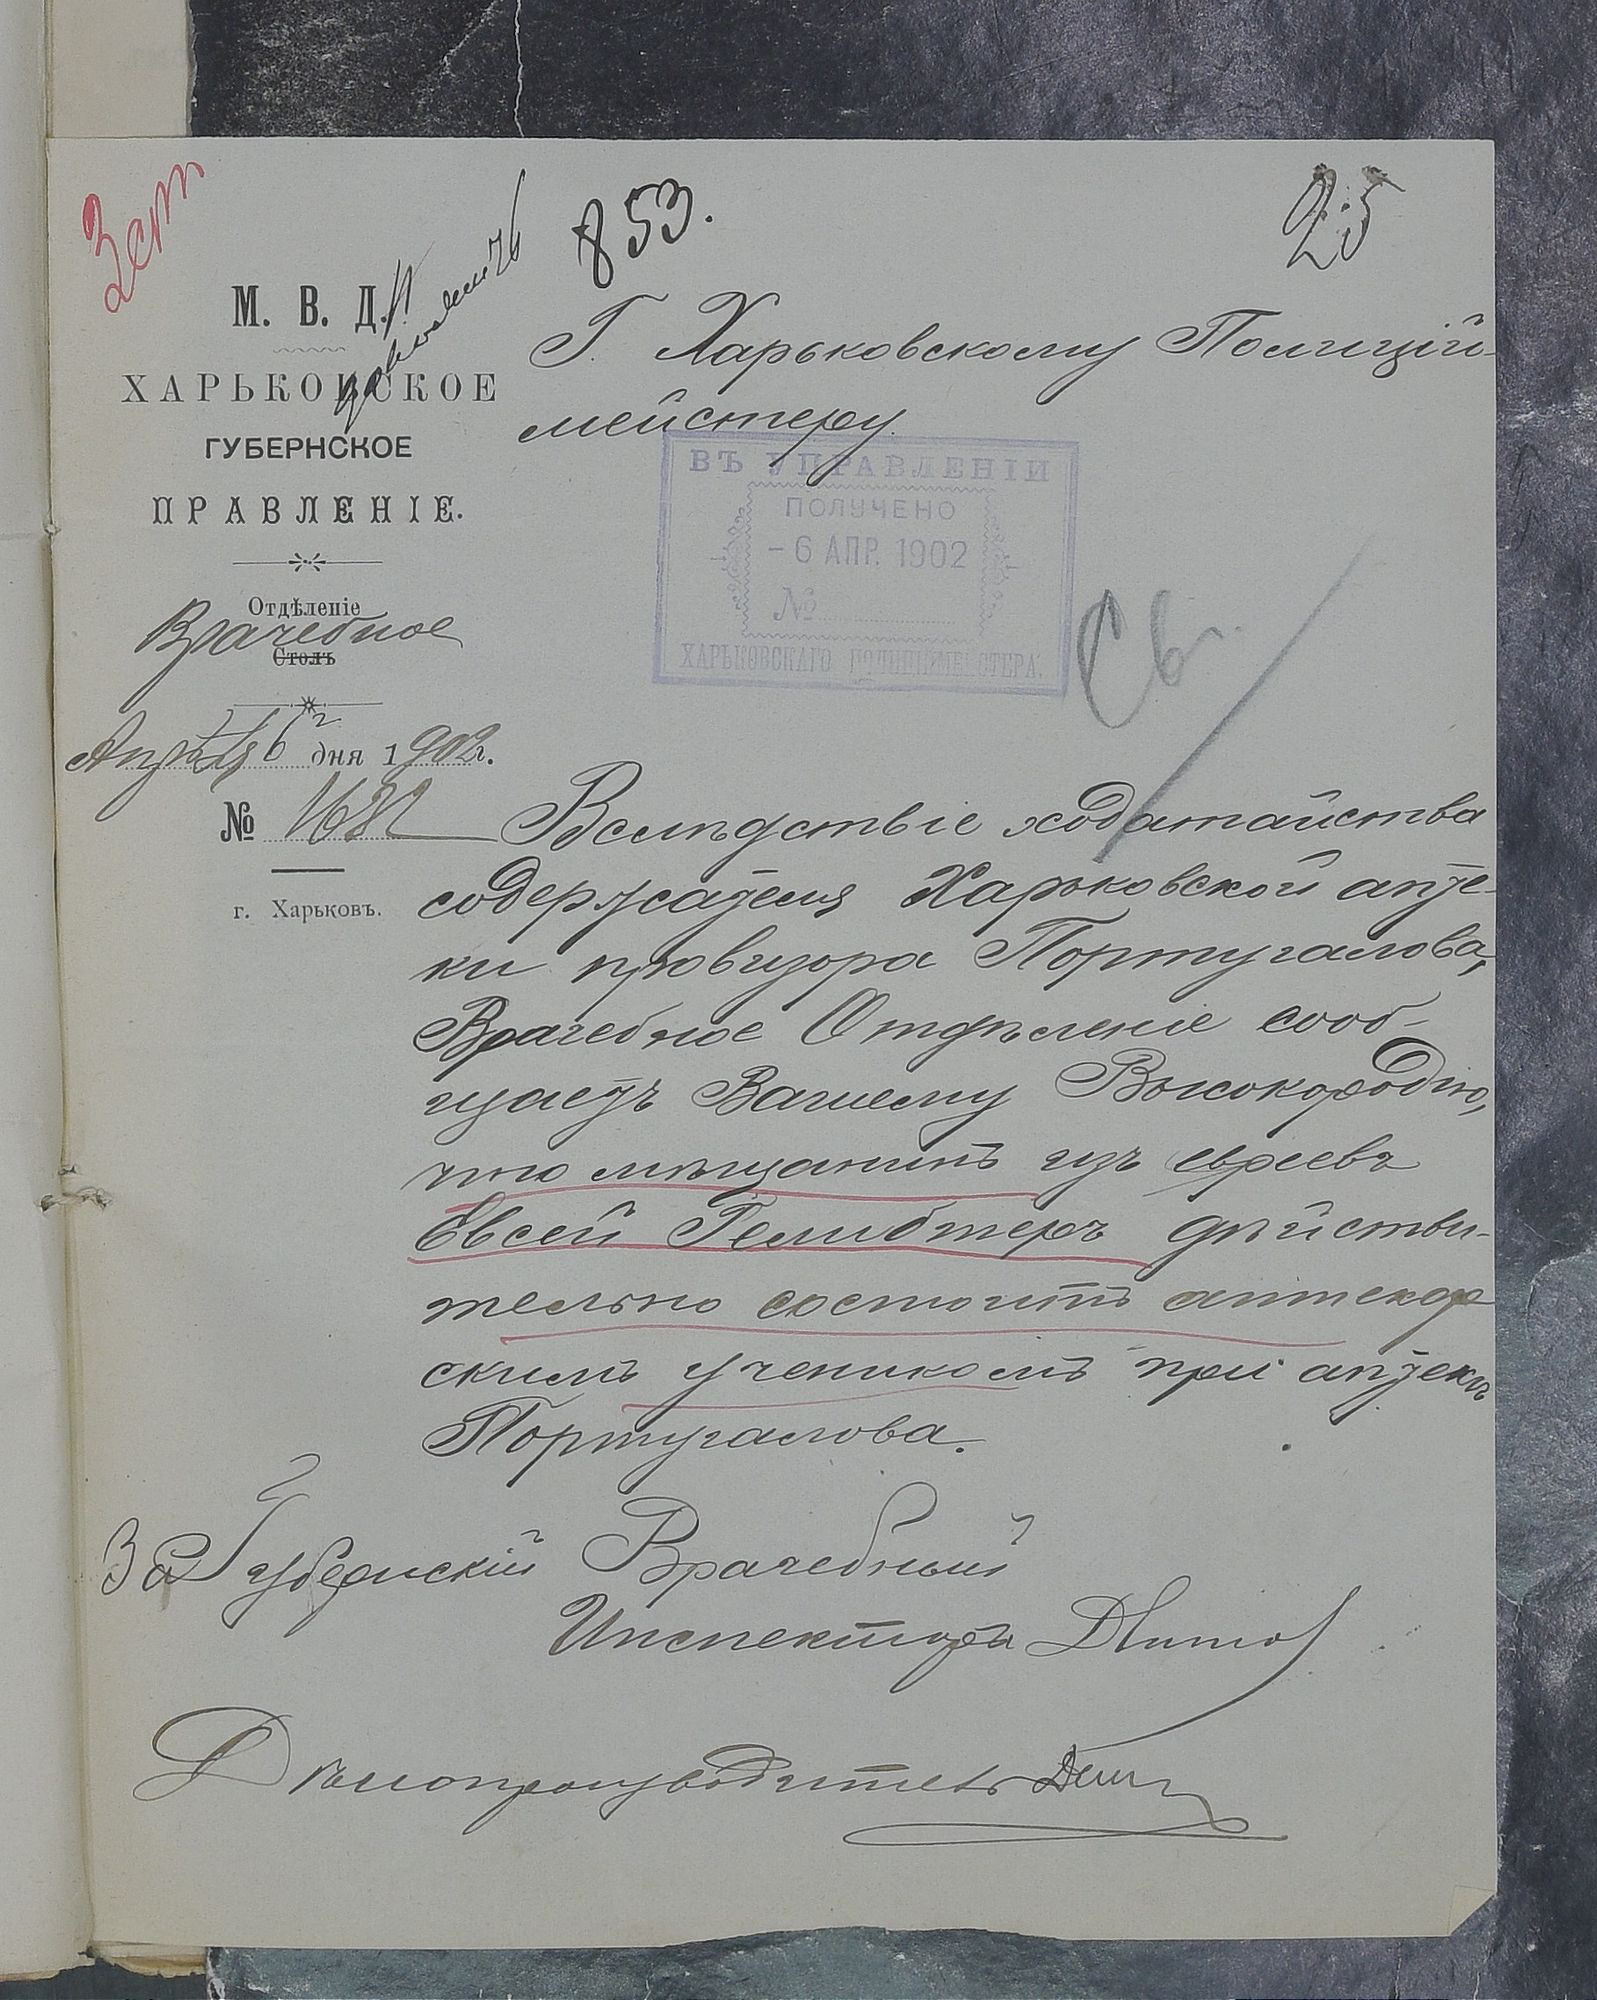 853.
25
М. В. Д.
ХАРЬКОВСКОЕ
ГУБЕРНСКОЕ
ПРАВЛЕНІЕ.
Отдѣленіе
Врачебное
Столъ
Апрѣля 6 дня 1902 г.
№
г. Харьковъ.
Г. Харьковскому Полицій-
мейстеру.
ВЪ УПРАВЛЕНІИ
ПОЛУЧЕНО
- 6 АПР. 1902
№
ХАРЬКОВСКАГО ПОЛИЦІЙМЕЙСТЕРА.
Вслѣдствіе ходатайства
содержателя Харьковской апте-
ки провизора Португалова,
Врачебное Отдѣленіе сооб-
щаетъ Вашему Высокородію,
что мѣщанинъ изъ евреевъ
Евсей Гелибтеръ дѣйстви-
тельно состоитъ аптекар
скимъ ученикомъ при аптекѣ
Португалова.
За Губернскій Врачебный
Инспекторъ
Дѣлопроизводитель